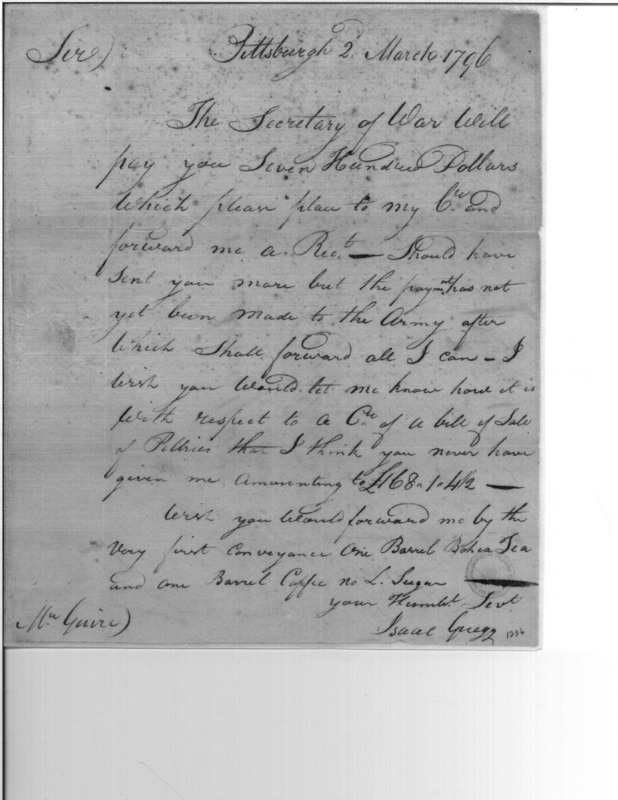 Sir) Pittsburgh 2d March 1796
The Secretary of War Will
pay you Seven Hundred Dollars
Which please place to my Cr. and
forward me a Rect. — Should have
Sent you more but the paymt has not
yet been made to the Army after
Which Shall forward all I can — I
Wish you Would let me know how it is
With respect to a Cr. of a bill of Sale
of Peltries that I think you never have
given me Amounting to £168..1..4½ —
Wish you Would forward me by the
Very first Conveyance One Barrel Bohea Tea
and one Barrel Coffe no L. Sugar —
your Humbl. Servt.
Mr. Guire) Isaac Gregg
1796